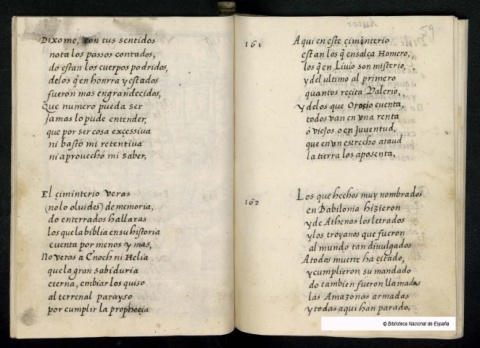 Dixome, con tus sentidos
nota los passos contados,
do estan los cuerpos podridos,
delos q̄ en honrra y estados
fueron mas engrandecidos,
Que numero pueda ser
jamas lo pude entender,
que por ser cosa excessiva
ni bastó mi retentiva
ni aprovechó mi saber,
El ciminterio veras
(no lo oluides) de memoria,
do enterrados hallaras
los que la biblia en su historia
cuenta por menos y mas,
No veras a Enoch ni Helia
que la gran sabiduria
eterna, embiar los quiso
al terrenal parayso
por cumplir la prophecia
59
161
Aqui en este ciminterio
estan los q̄ ensalca Homero,
los q̄ en Livio son misterio,
y del ultimo al primero
quantos recita Valerio,
Y delos que Orosio cuenta,
todos van en una renta
ó viejos o en juventud,
que en un estrecho ataud
la tierra los aposenta,
162
Los que hechos muy nombrados
en Babilonia hizieron
y de Athenas los letrados
y los troyanos que fueron
al mundo tan divulgados
A todos muerte ha citado,
y cumplieron su mandado
do tambien fueron llamadas
las Amazonas armadas
y todas aqui han parado,
© Biblioteca Nacional de España